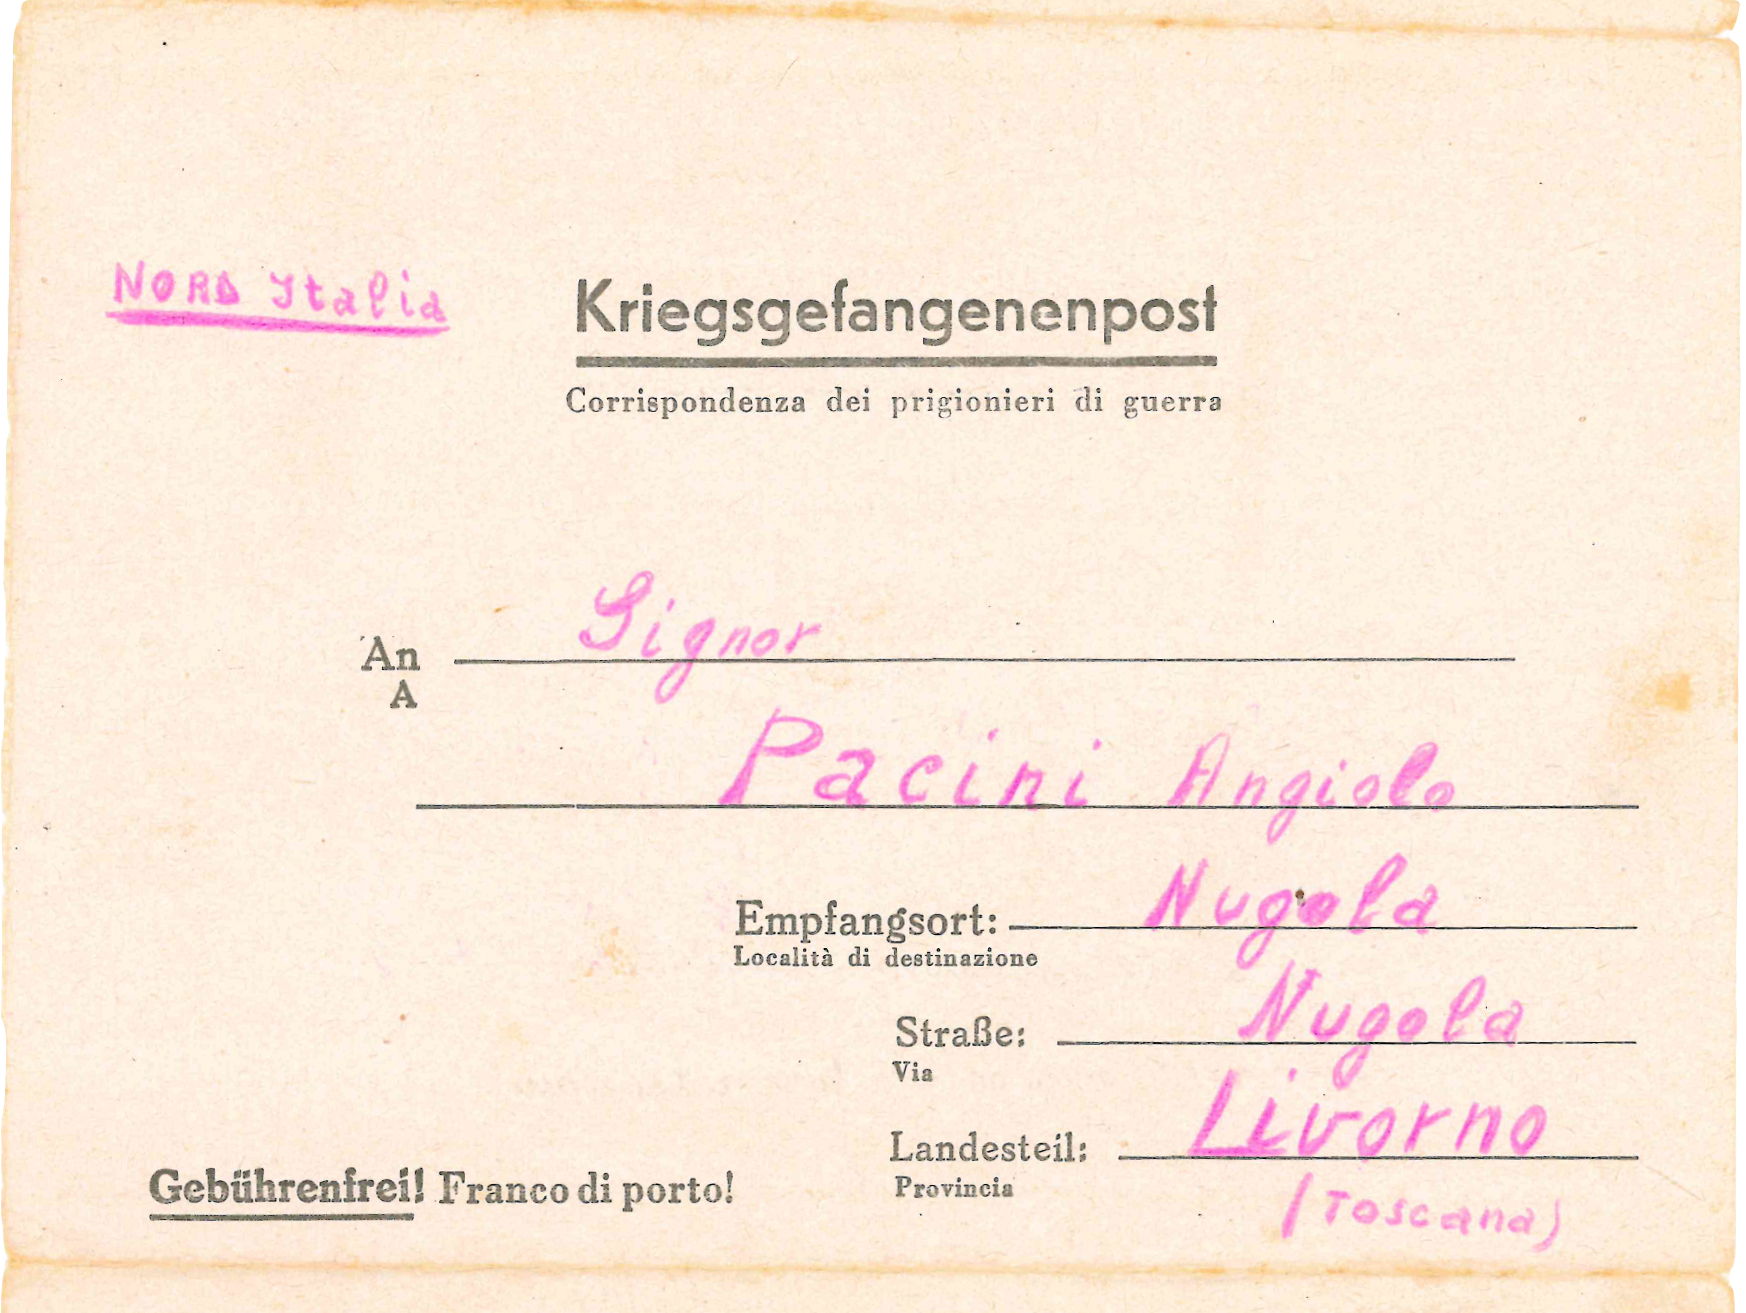 Nord Italia
Kriegsgefangenenpost
Corrispondenza dei prigionieri di guerra
An Signor
A
Pacini Angiolo
Empfangsort: Nugola
Località di destinazione
Straße: Nugola
Via
Landesteil: Livorno
Provincia
(Toscana)
Gebührenfrei! Franco di porto!